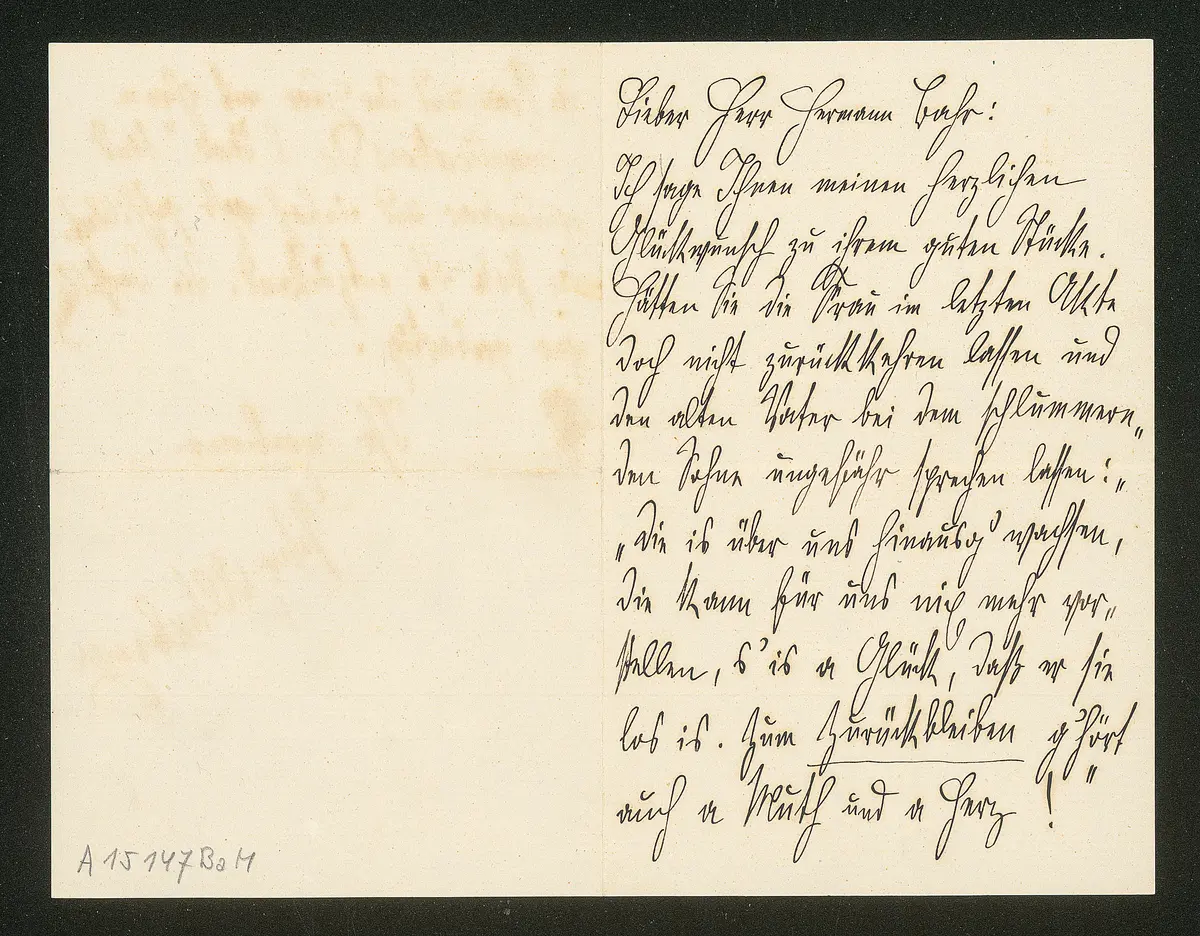 Lieber Herr Hermann Bahr:
Ich sage Ihnen meinen herzlichen
Glückwunsch zu ihrem guten Stücke.
Hätten Sie die Frau im letzten Akte
doch nicht zurückkehren lassen und
den alten Vater bei dem schlummern„
den Sohne ungefähr sprechen lassen:„
„Die is über uns hinausg'wachsen,
die kann für uns nix mehr vor„
stellen, s'is a Glück, daß er sie
los is. Zum Zurückbleiben g'hört
auch a Muth und a Herz!"
A 15147 BaM